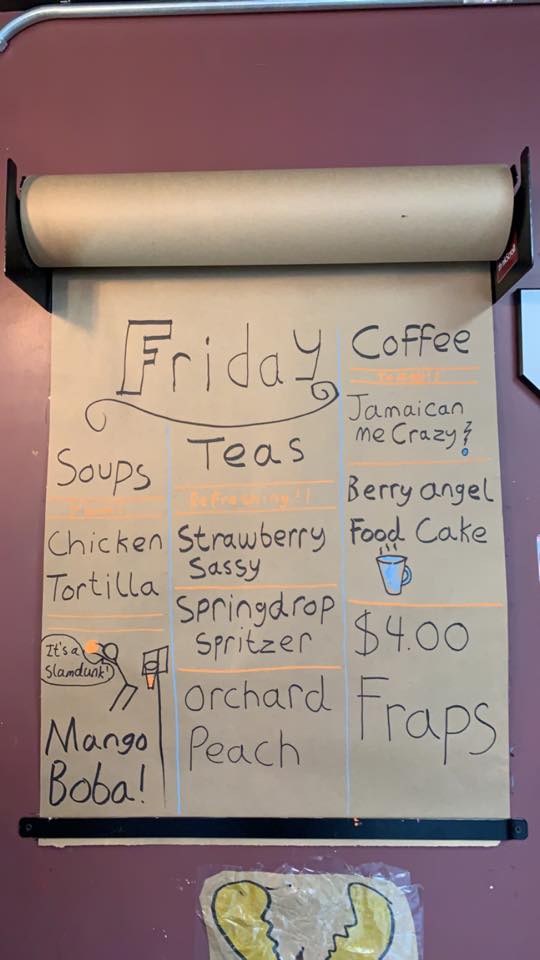 Friday
Soups
Chicken
Tortilla
It's a
Slamdunk!
Mango
Boba!
Teas
Refreshing!!
Strawberry
Sassy
Springdrop
Spritzer
Orchard
Peach
Coffee
Jamaican
me Crazy!
Berry angel
Food Cake
$4.00
Fraps